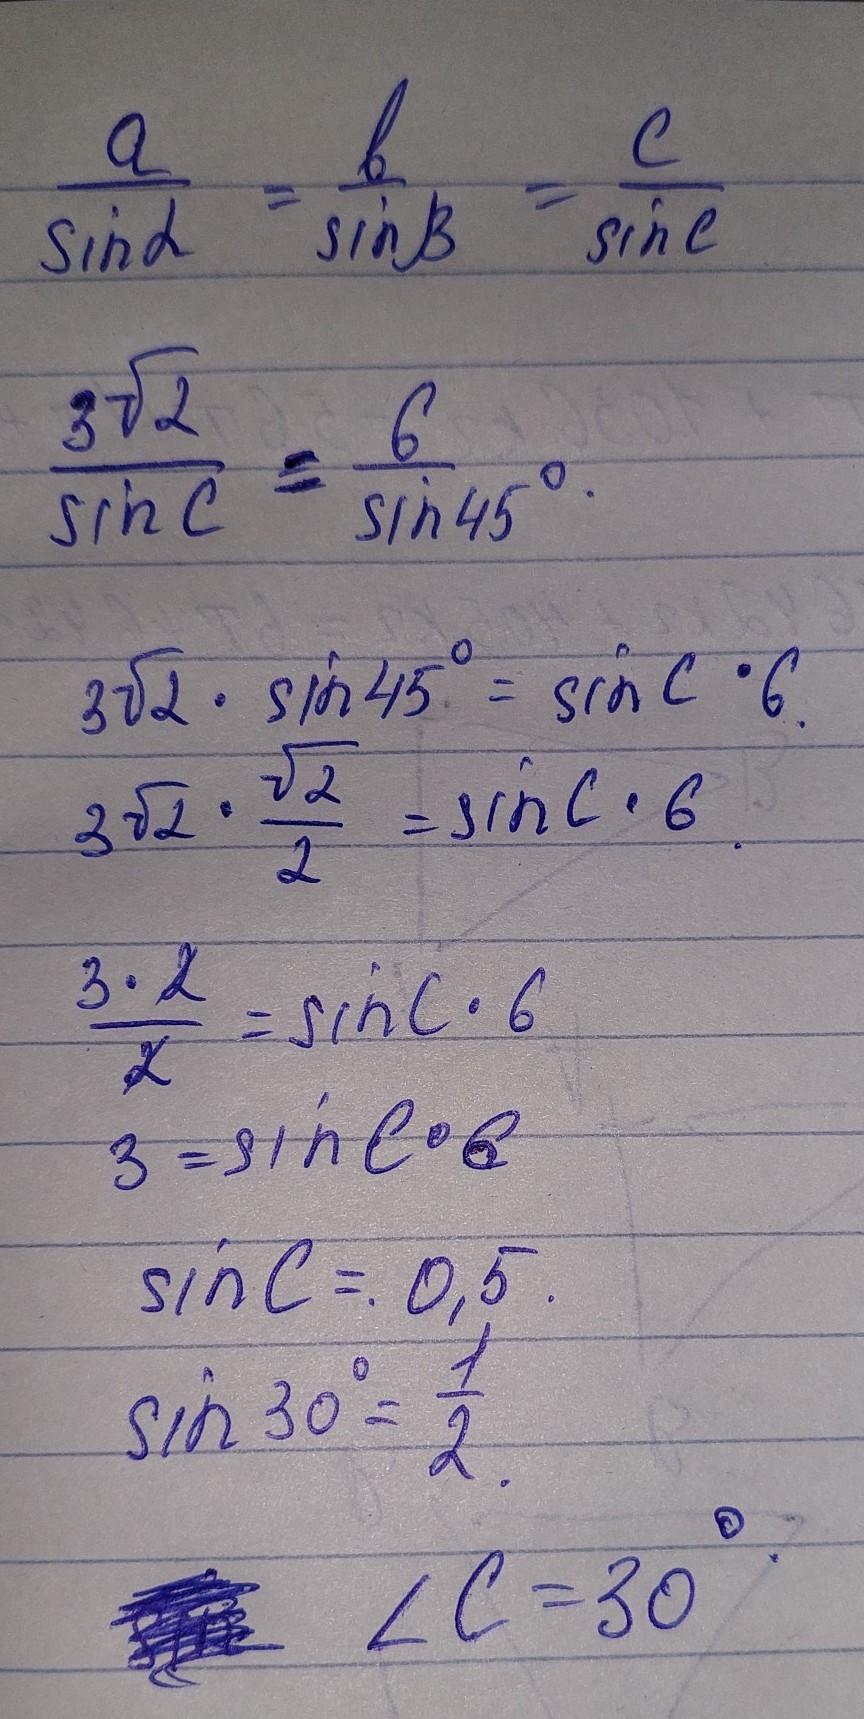 a/sinα = b/sinβ = c/sinC
3√2/sinC = 6/sin45°.
3√2 · sin45° = sinC · 6.
3√2 · √2/2 = sinC · 6.
3·2/2 = sinC · 6
3 = sinC · 6
sinC = 0,5.
sin30° = 1/2.
∠C = 30°.